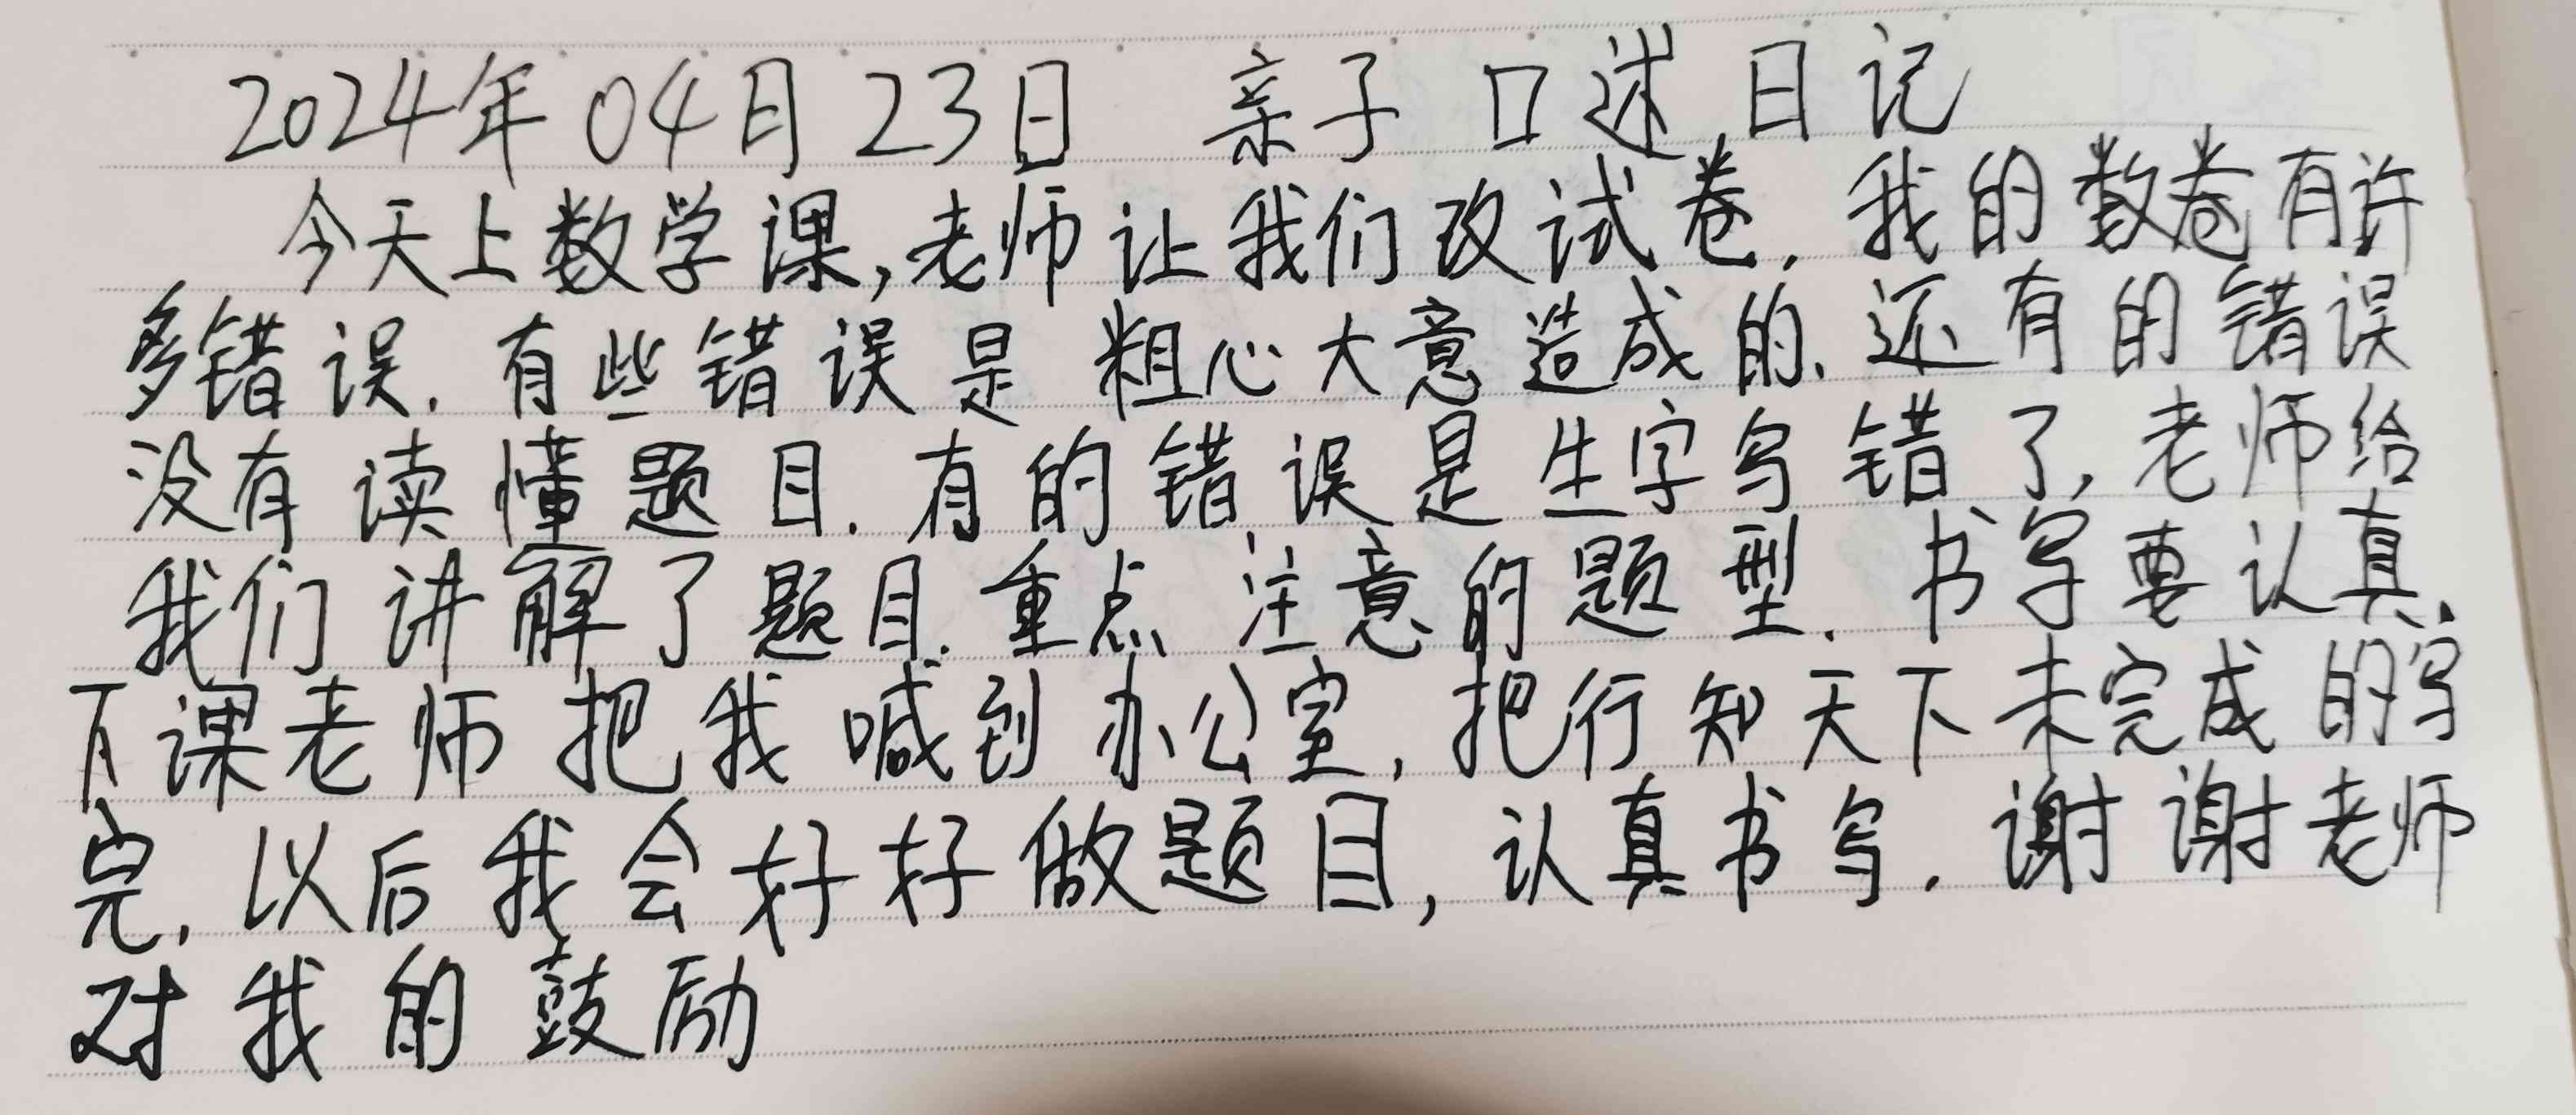 2024年04月23日 亲子口述日记
今天上数学课,老师让我们改试卷.我的数卷有许
多错误.有些错误是粗心大意造成的.还有的错误
没有读懂题目.有的错误是生字写错了,老师给
我们讲解了题目.重点注意的题型.书写要认真.
下课老师把我喊到办公室,把行知天下未完成的写
完,以后我会好好做题目,认真书写.谢谢老师
对我的鼓励